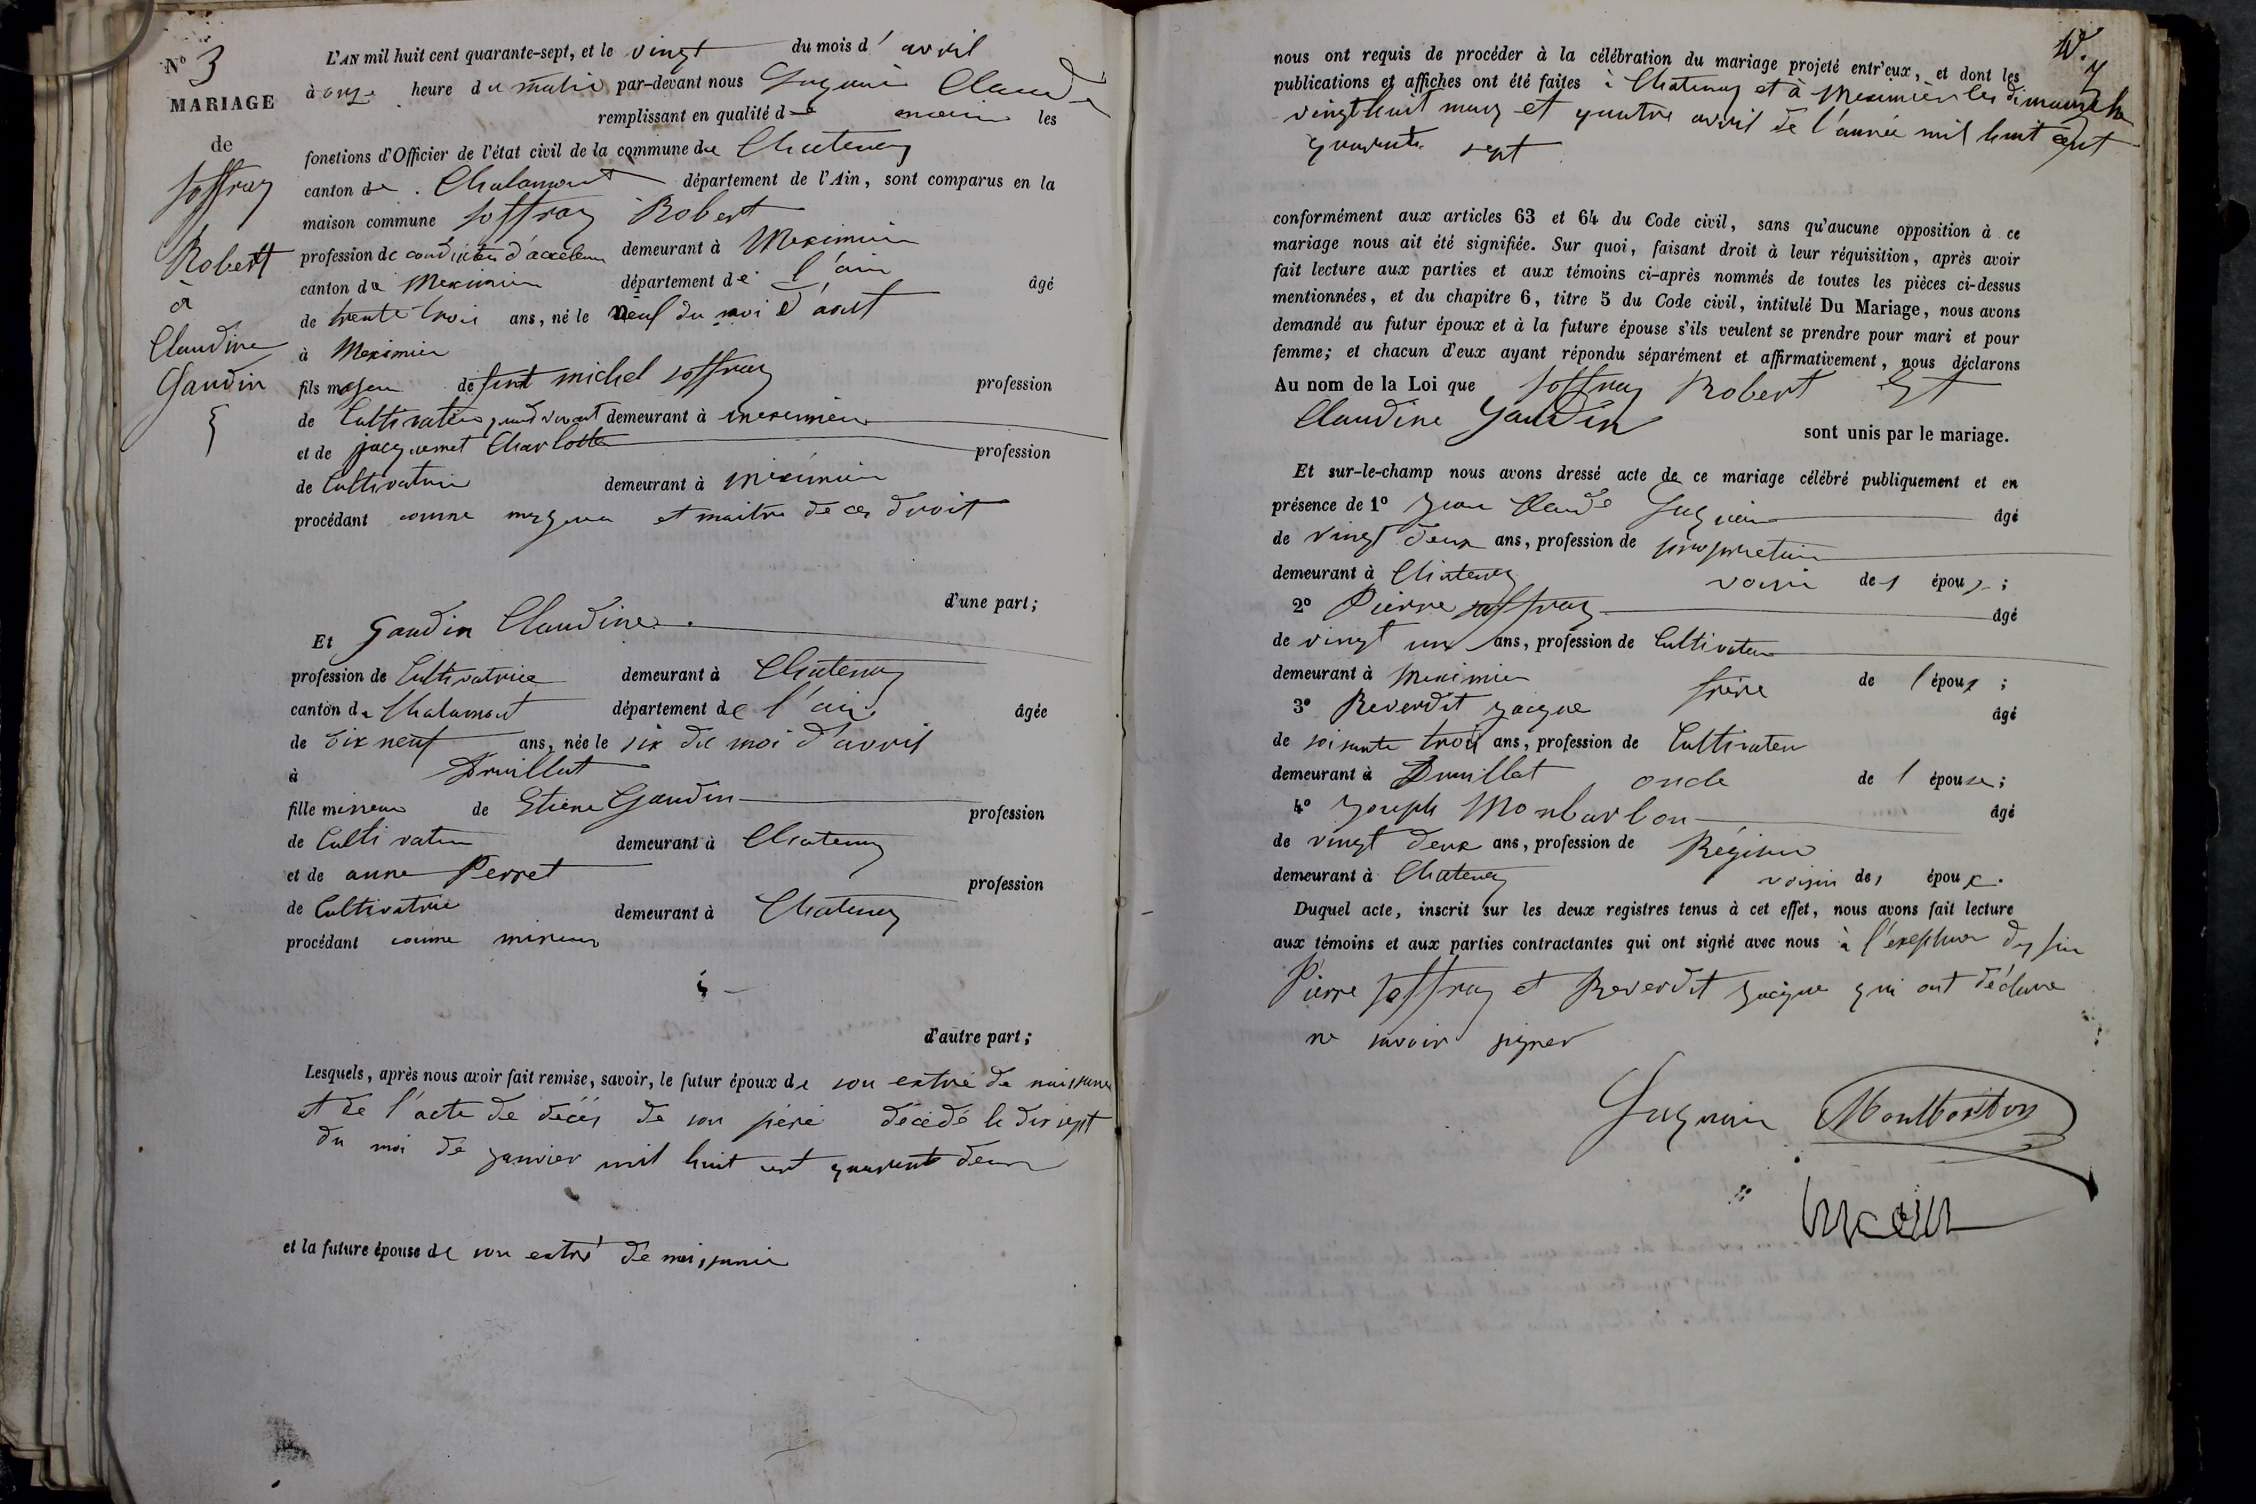 N° 3
MARIAGE
de
Joffray
Robert
à
Claudine
Gaudin
L'AN mil huit cent quarante-sept, et le vingt du mois d' avril
à onze heure du matin par-devant nous Juguin Claude
remplissant en qualité de maire les
fonctions d'Officier de l'état civil de la commune de Chatenay
canton de Chalamont département de l'Ain, sont comparus en la
maison commune Joffray Robert
profession de conducteur d' demeurant à Meximieu
canton de Meximieu département de l'ain âgé
de trente trois ans, né le neuf du moi d'aout
à Meximieu
fils majeur de feut michel Joffray profession
de Cultivateur quand vivant demeurant à meximieu
et de jacquemet Charlotte profession
de Cultivatrice demeurant à méximieu
procédant comme majeur et maitre de ces droit
d'une part;
Et Gaudin Claudine
profession de Cultivatrice demeurant à Chatenay
canton de Chalamont département de l'ain âgée
de dix neuf ans, née le six du moi d'avril
à Druillat
fille mineure de Etiene Gaudin profession
de Cultivateur demeurant à Chatenay
et de anne Perret profession
de Cultivatrice demeurant à Chatenay
procédant comme mineure
d'autre part;
Lesquels, après nous avoir fait remise, savoir, le futur époux de son extrè de naissance
et de l'acte de décés de son père décédé le dix sept
du moi de janvier mil huit cent quarante deux
et la future épouse de son extré de naissance
nous ont requis de procéder à la célébration du mariage projeté entr'eux, et dont les
publications et affiches ont été faites à Chatenay et à Meximieu les dimanche
vingt huit mars et quatre avril de l'année mil huit cent
quarante sept
conformément aux articles 63 et 64 du Code civil, sans qu'aucune opposition à ce
mariage nous ait été signifiée. Sur quoi, faisant droit à leur réquisition, après avoir
fait lecture aux parties et aux témoins ci-après nommés de toutes les pièces ci-dessus
mentionnées, et du chapitre 6, titre 5 du Code civil, intitulé Du Mariage, nous avons
demandé au futur époux et à la future épouse s'ils veulent se prendre pour mari et pour
femme; et chacun d'eux ayant répondu séparément et affirmativement, nous déclarons
Au nom de la Loi que Joffray Robert Et
Claudine Gaudin
sont unis par le mariage.
Et sur-le-champ nous avons dressé acte de ce mariage célébré publiquement et en
présence de 1° Jean Claude Juguin âgé
de vingt deux ans, profession de propriétaire
demeurant à Chatenay voisin des époux;
2° Pierre Joffray âgé
de vingt un ans, profession de Cultivateur
demeurant à Meximieu frère de l'époux;
3° Reverdit Jacque âgé
de soisante trois ans, profession de Cultivateur
demeurant à Druillat oncle de l'épouse;
4° Joseph Monbarbon âgé
de vingt deux ans, profession de Régiseur
demeurant à Chatenay voisin des époux.
Duquel acte, inscrit sur les deux registres tenus à cet effet, nous avons fait lecture
aux témoins et aux parties contractantes qui ont signé avec nous à l'exeption
Pierre Joffray et Reverdit Jacque qui ont déclaré
ne savoir signer
Juguin Montbarbon